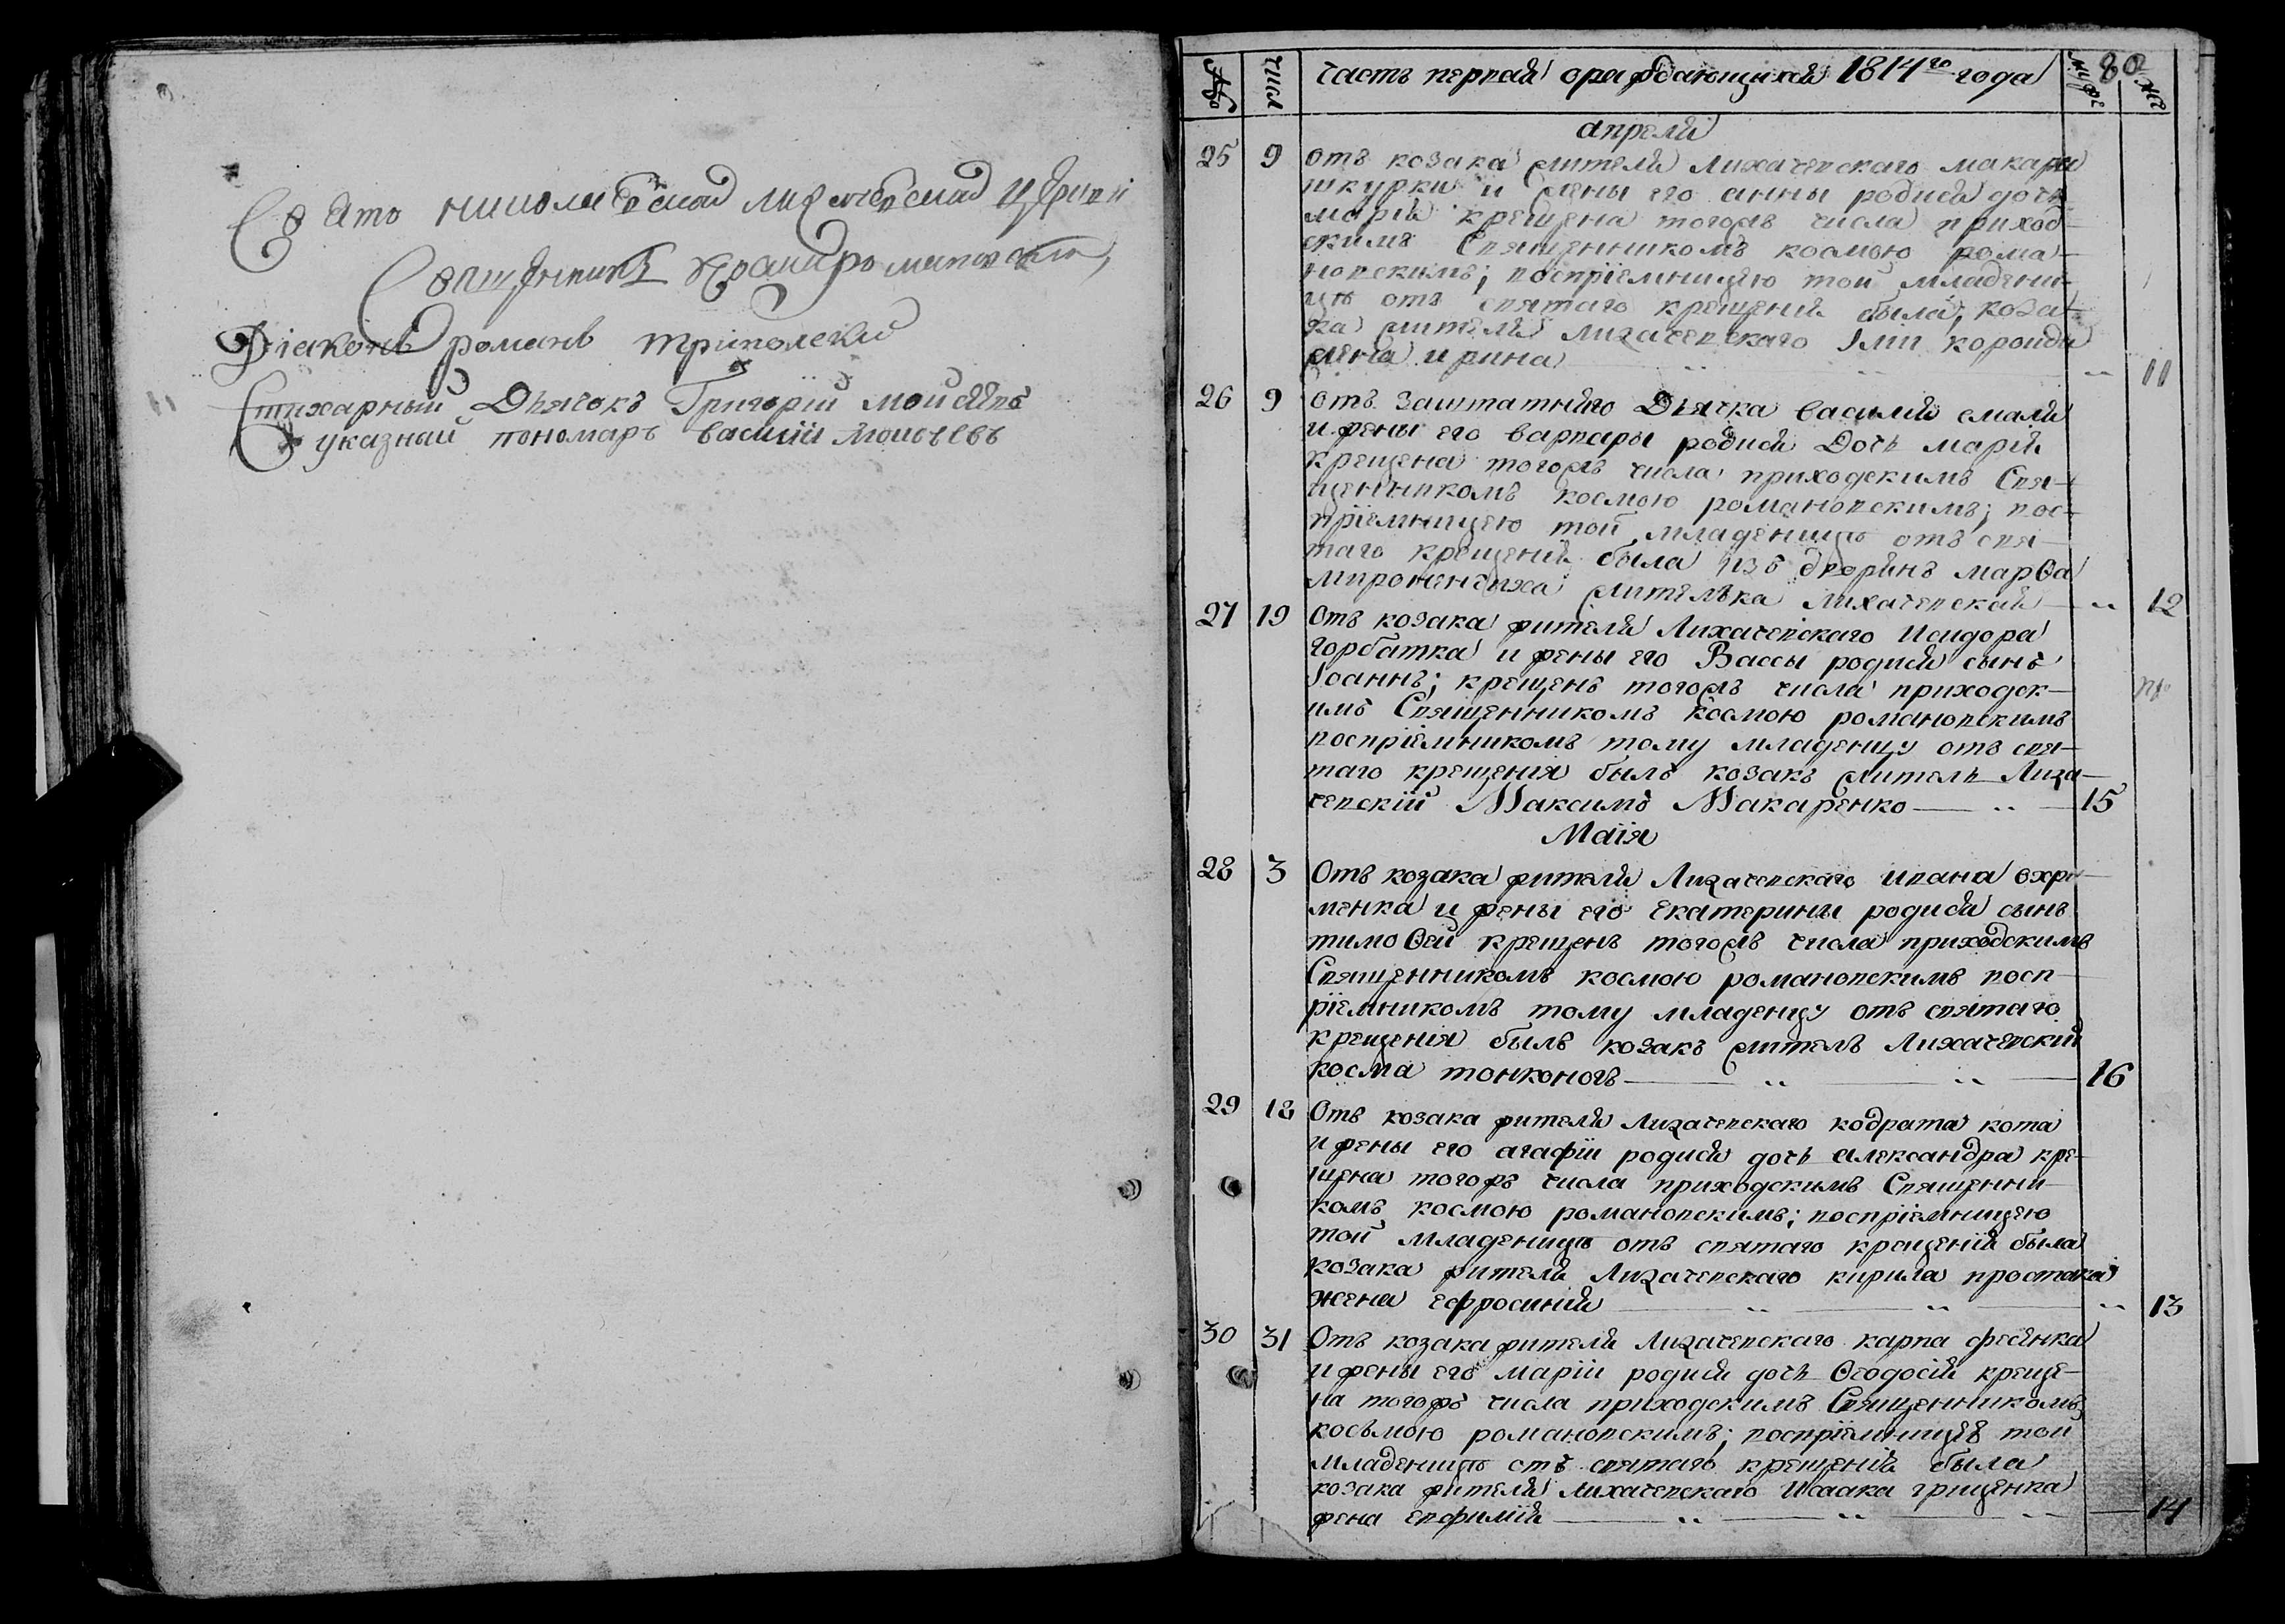 Свято николаевской лихачевской церкви
Священникъ Косма романовский
Діаконъ романъ тріполскій
Стихарный Дьячокъ Григорій моисеевъ
указный пономаръ василій
№
числ
часть первая ораждающихся 1814го года
80
муж
жен
апреля
25 9 отъ козака жителя лихачевскаго макара
шкурки и жены его анны родися дочь
марія крещена тогожъ числа приход-
скимъ Священникомъ космою рома-
новскимъ; воспріемницею той младени-
цѣ отъ святаго крещенія была, коза-
ка жителя лихачевскаго
жена ирина 11
26 9 отъ заштатнаго Дьячка василія смаля
и жены его варвары родися Дочь марія
крещена тогожъ числа приходскимъ Свя-
щенникомъ космою романовскимъ; вос-
пріемницею той младеницѣ отъ свя-
таго крещенія была изъ дворянъ марѳа
мироненчиха жителька лихачевская 12
27 19 отъ козака жителя Лихачевскаго Исидора
горбатка и жены его Вассы родися сынъ
Іоаннъ; крещенъ тогожъ числа приходск-
имъ Священникомъ космою романовскимъ
воспріемникомъ тому младенцу отъ свя-
таго крещенія былъ козакъ житель Лиха-
чевскій Максимъ Макаренко 15
Маія
28 3 Отъ козака жителя Лихачевскаго ивана охри-
менка и жены его екатерины родися сынъ
тимоѳей крещенъ тогожъ числа приходскимъ
Священникомъ космою романовскимъ восп-
ріемникомъ тому младенцу отъ святаго
крещенія былъ козакъ житель Лихачевскій
косма тонконогъ 16
29 18 Отъ козака жителя лихачевскаго кодрата кота
и жены его агафіи родися дочь александра кре-
щена тогожъ числа приходскимъ Священни-
комъ космою романовскимъ; воспріемницею
той младеницѣ отъ святаго крещенія была
козака жителя лихачевскаго кирила простака
жена ефросинія 13
30 31 Отъ козака жителя лихачевскаго карпа фесенка
и жены его маріи родися дочь Ѳеодосія креще-
на тогожъ числа приходскимъ Священникомъ
косьмою романовскимъ; воспріемницею той
младеницѣ отъ святаго крещенія была
козака жителя лихачевскаго Исаака грищенка
жена евфимія 14